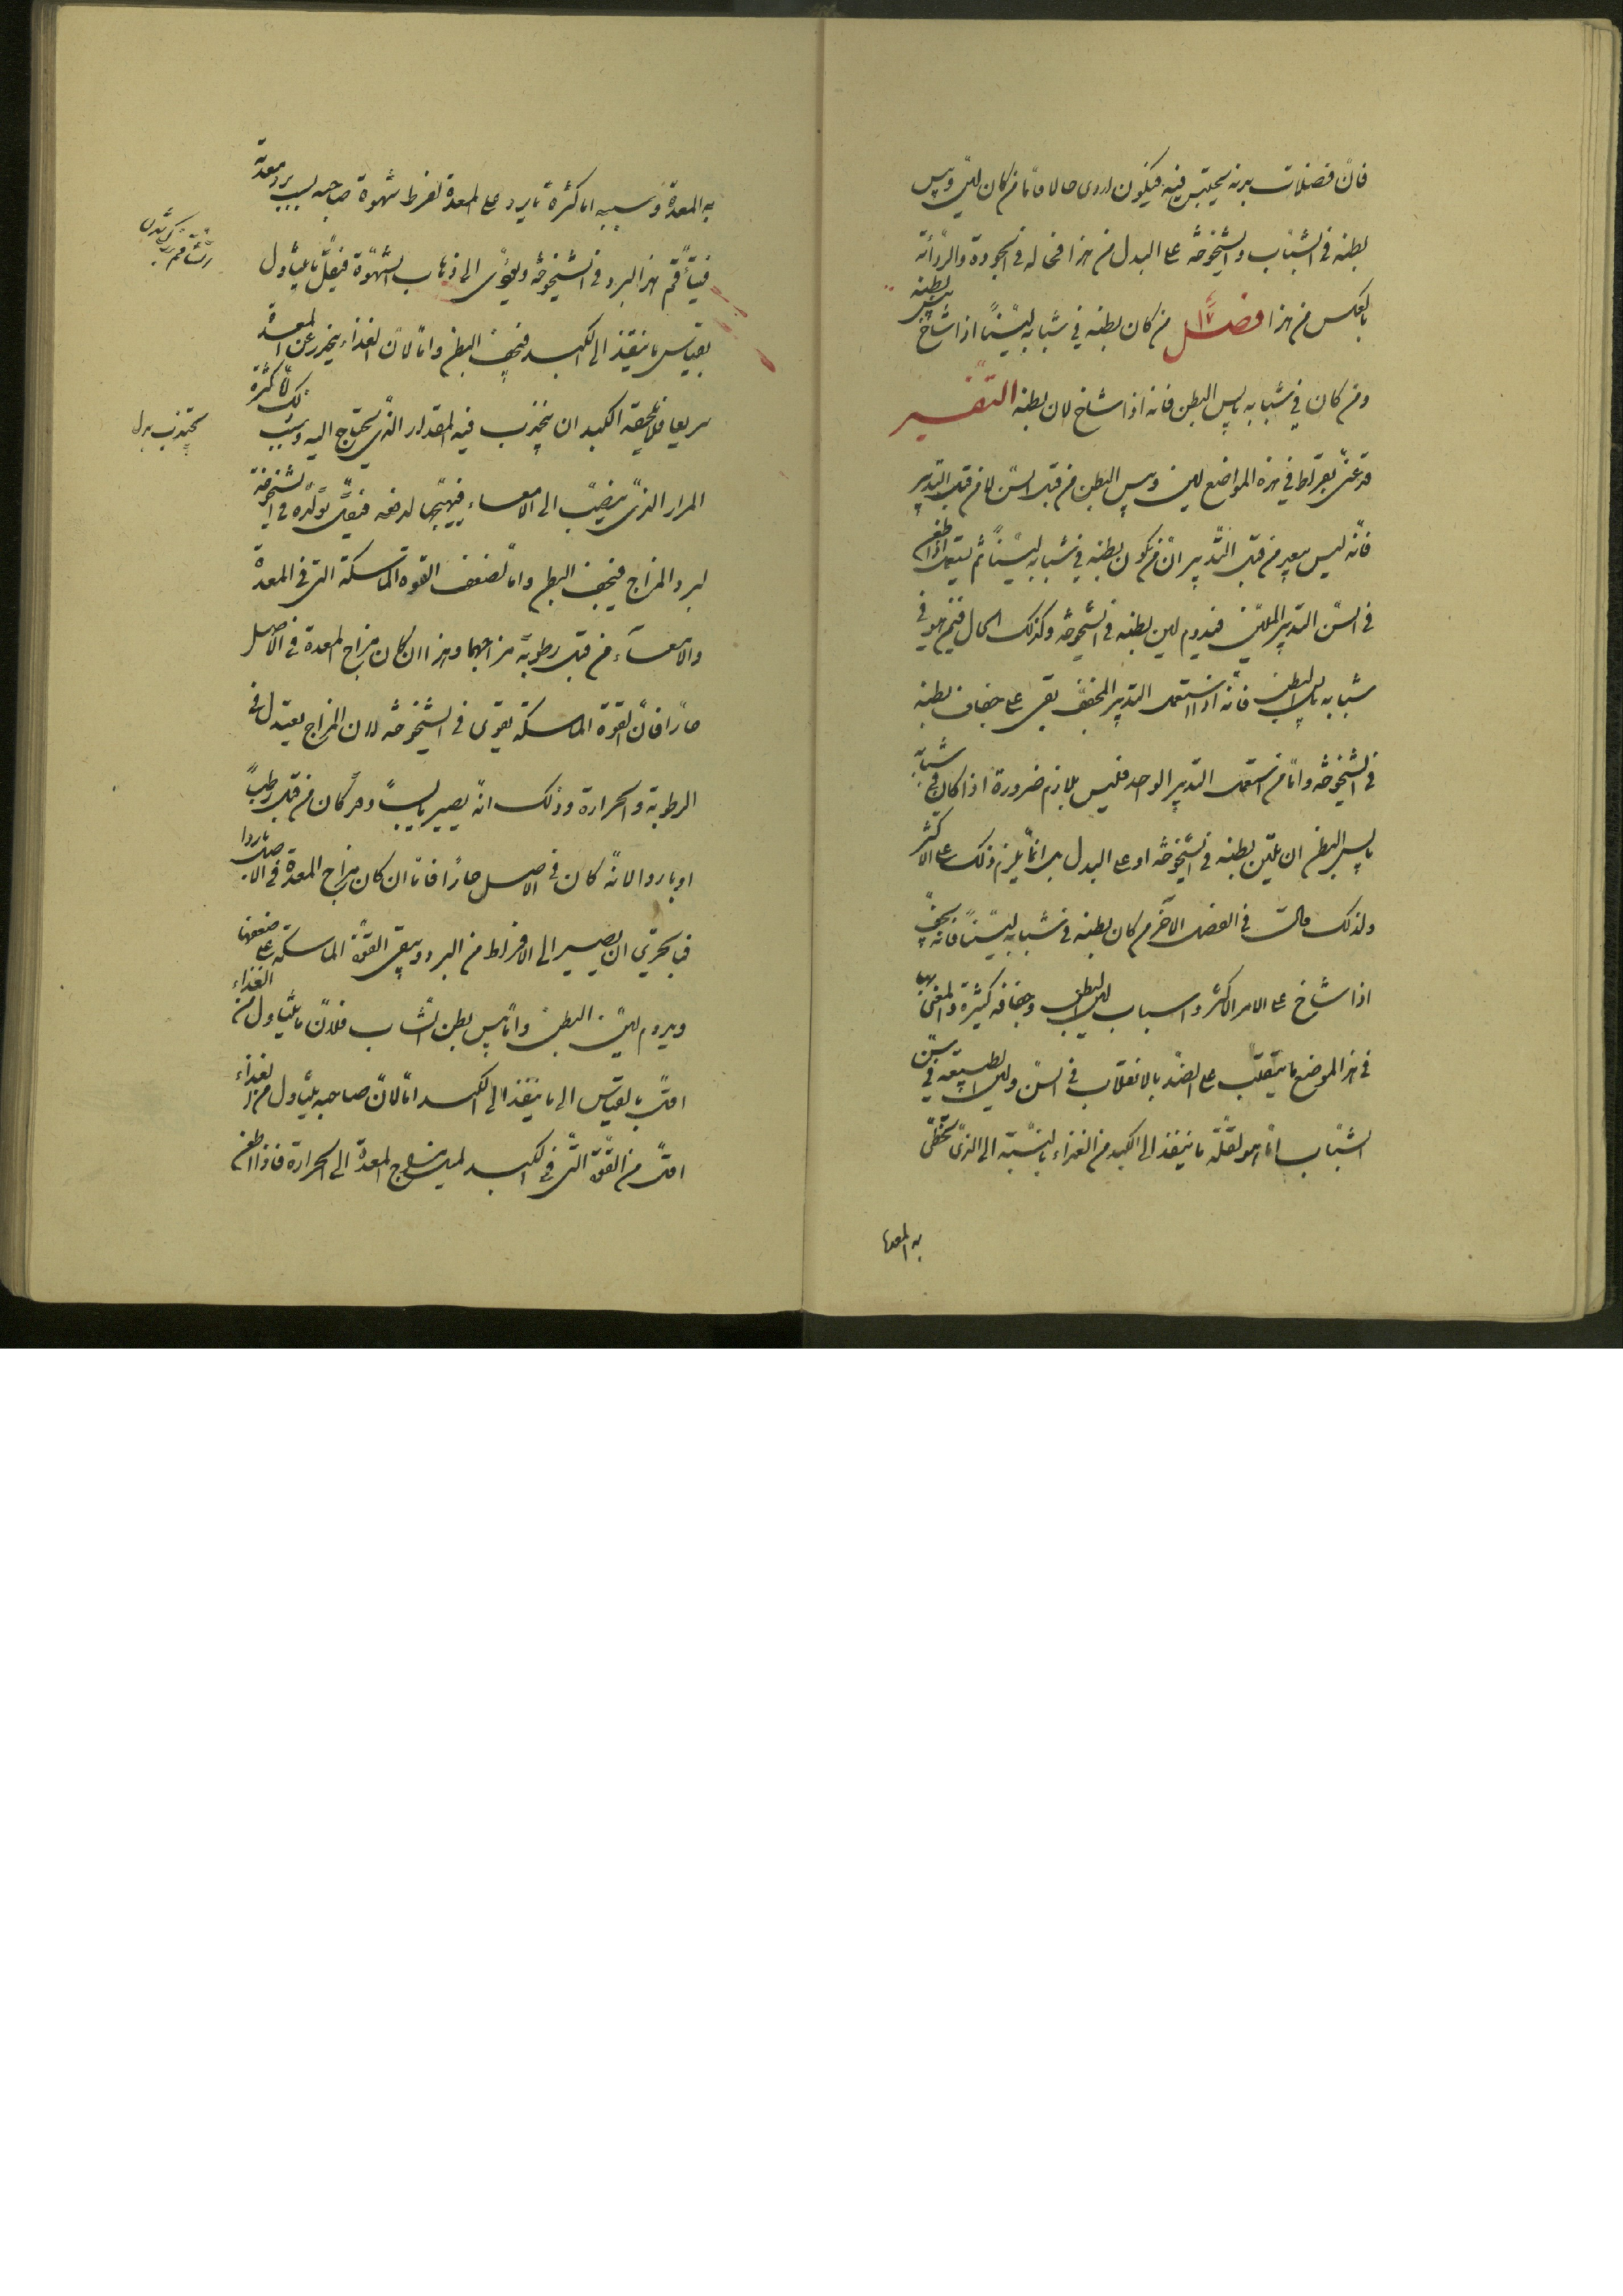 فانّ فضلات بدنه يحتبس فيه فيكون اردى حالا فامّا من كان ليّن ويبس
بطنه فى الشباب والشيخوخة على البدل من هذا فحاله فى الجودة والردأة
بالعكس من هذا فصل ١٧ من كان بطنه فى شبابه ليّنًا اذا شاخ يبس بطنه
ومن كان فى شبابه يابس البطن فانه اذا شاخ لان بطنه التفسير
قد عنى بقراط فى هذه المواضع لين ويبس البطن من قبل السنّ لا من قبل التدبير
فانّه ليس ببعيد من قبل التدبير ان من يكون بطنه فى شبابه ليّنًا ثم يستعمل اذا طعن
فى السنّ التدبير المليّن فيدوم لين بطنه فى الشيخوخة وكذلك الحال فيمن هو فى
شبابه يابس البطن فانه اذا استعمل التدبير المجفف بقى على جفاف بطنه
فى الشيخوخة وامّا من استعمل التدبير الواحد فليس يلازم ضرورة اذا كان فى شبابه
يابس البطن ان يلين بطنه فى الشيخوخة او على البدل بل انّما يلزم ذلك على الاكثر
ولذلك قالت فى الفصل الآخر من كان بطنه فى شبابه ليّنًا فانه يجفّ
اذا شاخ على الامر الاكثر واسباب لين البطن وجفافه كثيرة والمعنى بها
فى هذا الموضع ما ينقلب على الضدّ بالانقلاب فى السنّ ولين الطبيعة فى سنّ
الشباب انّما هو لقلّة ما ينفذ الى الكبد من الغذاء بالنسبة الى الذى تحظى
به المعدة
به المعدة وسببه اما كثرة ما يرد على المعدة لفرط شهوة صاحبه بسبب برد معدته
فيتأقم هذا البرد فى الشيخوخة ويؤدى الى ذهاب الشهوة فيقلّ ما يتناول
بقياس ما ينفذ الى الكبد فيجف البطن وامّا لانّ الغذاء ينحدر عن المعدة
سريعا فلا يلحقه الكبد ان يجذب فيه المقدار الذى يحتاج اليه وسبب ذلك امّا كثرة
يجتذب بدل
المرار الذى ينصبّ الى الامعاء فيهيّجها لدفعه فيقلّ تولّده فى الشيخوخة
لبرد المزاج فيجف البطن وامّا لضعف القوة الماسكة التى فى المعدة
والامعاء من قبل رطوبة مزاجهما وهذا ان كان مزاج المعدة فى الاصل
حارّا فانّ القوة الماسكة يقوى فى الشيخوخة لان المزاج يعتدل فى
الرطوبة والحرارة وذلك انّه يصير يابسًا وقد كان من قبل رطبًا
او باردا لانّه كان فى الاصل حارًا فامّا ان كان مزاج المعدة فى الاصل باردا
فبالحرىّ ان يصير الى الافراط من البرد ويبقى القوّة الماسكة على ضعفها
ويدوم لين البطن وامّا يبس بطن الشاب فلانّ ما يتناول من الغذاء
اقلّ بالقياس الى ما ينفذ الى الكبد امّا لانّ صاحبه يتناول من الغذاء
اقلّ من القوّة التى فى الكبد لميل مزاج المعدة الى الحرارة فاذا طعن